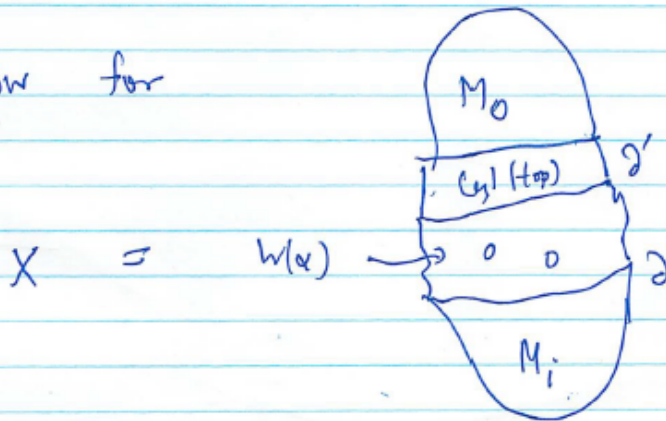 w for
M₀
Cyl (top)
∂'
X = W(α) → ∂
Mᵢ